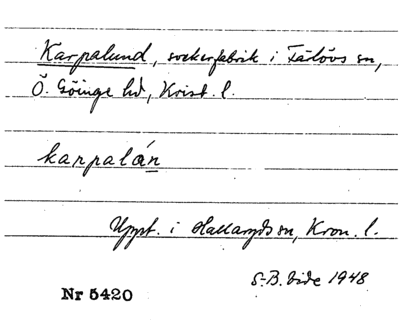 Karpalund, sockerfabrik i Färlövs sn,
Ö. Göinge hd, Krist. l.
karpalán
Uppt. i Hallaryds sn, Kron. l.
S-B. Vide 1948
Nr 5420